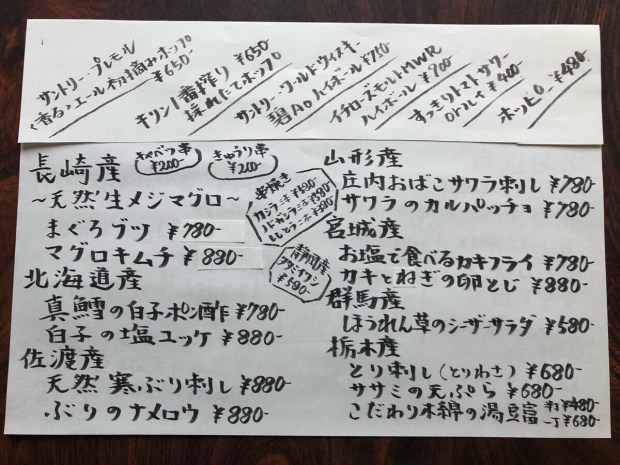 サントリー・プレモル
〈香る〉エール初摘みホップ
¥650
キリン一番搾り ¥650-
採れたてホップ
サントリー・ワールドウィスキー
碧Ao ハイボール ¥750
イチローズモルトMWR
ハイボール ¥700
すっきりトマトサワー
orハイ ¥400-
ホッピー ¥480-
長崎産
キャベツ串
¥200-
きゅうり串
¥200-
～天然生メジマグロ～
まぐろブツ ¥780-
マグロキムチ ¥880-
串焼き
カシラ二本 ¥390-
静岡産
¥580-
北海道産
真鱈の白子ポン酢 ¥780-
白子の塩ユッケ ¥880-
佐渡産
天然寒ぶり刺し ¥880-
ぶりのナメロウ ¥880-
山形産
庄内おばこサワラ刺し ¥780-
サワラのカルパッチョ ¥780-
宮城産
お塩で食べるカキフライ ¥780-
カキとねぎの卵とじ ¥880-
群馬産
ほうれん草のシーザーサラダ ¥580-
栃木産
とり刺し(とりわさ) ¥680-
ササミの天ぷら ¥680-
こだわり木綿の湯豆富 半丁¥480-
一丁¥680-